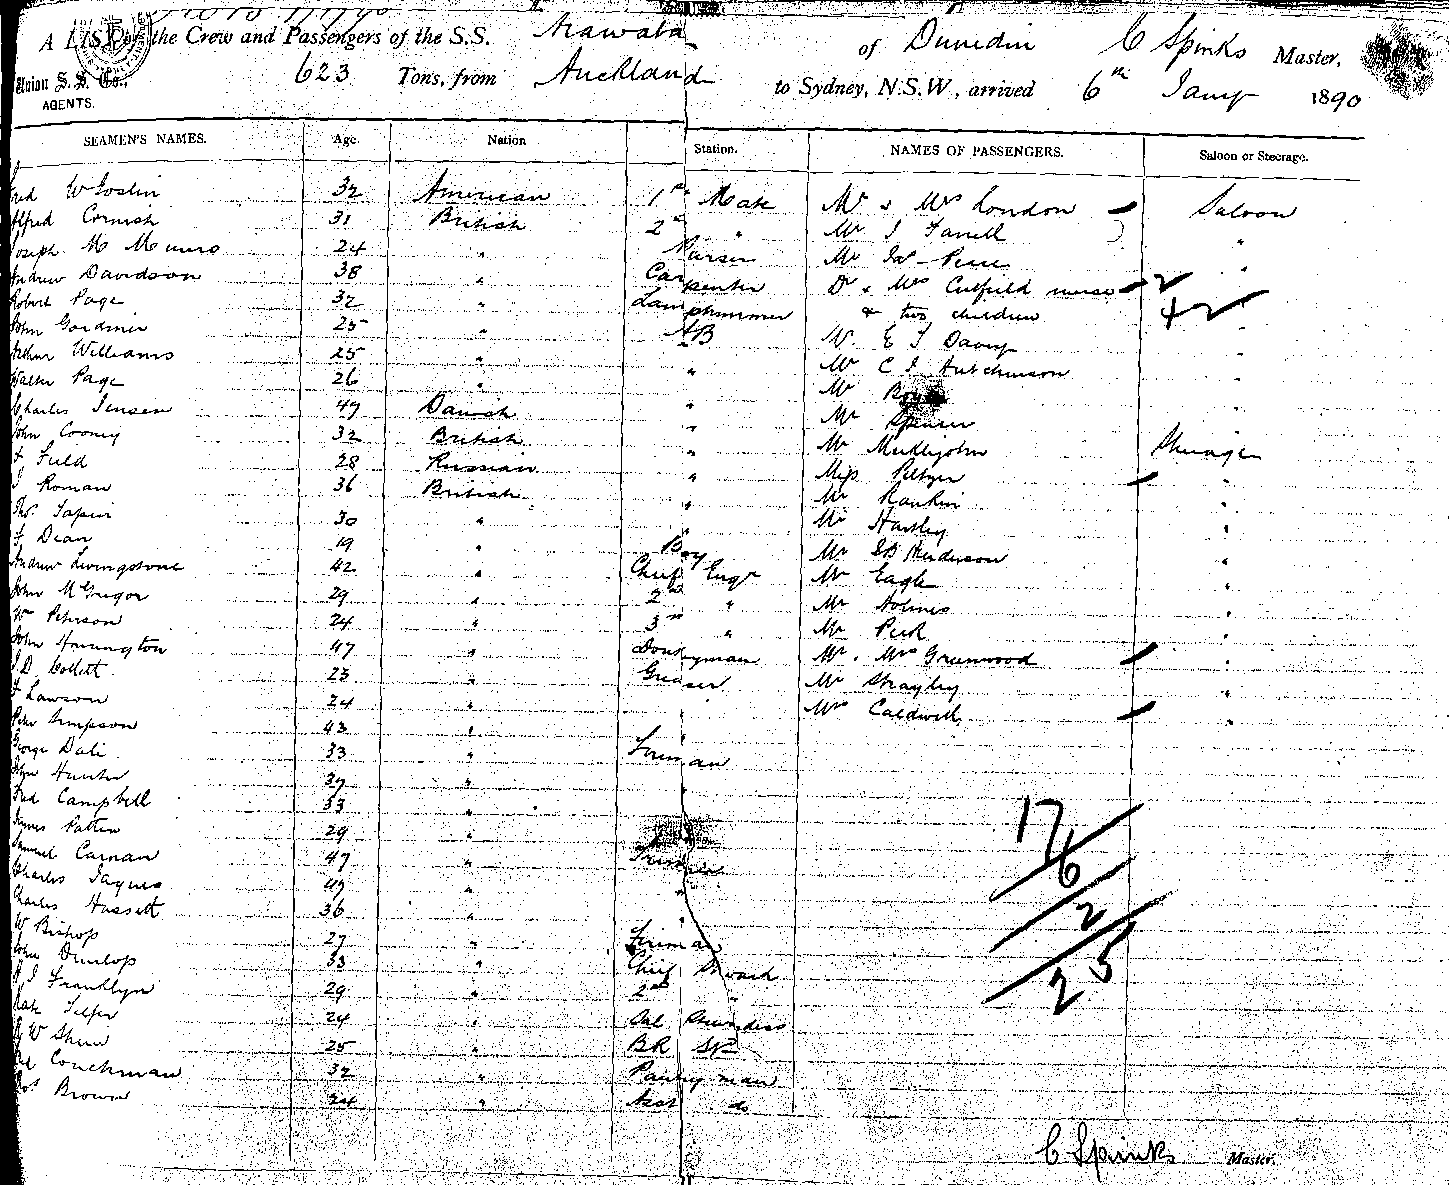 A LIST of the Crew and Passengers of the S.S. Mawata of Dunedin C Spinks Master,
Union S. S. Co., AGENTS. 623 Tons, from Auckland to Sydney, N.S.W., arrived 6th Jany 1890
SEAMEN'S NAMES. Age Nation Station. NAMES OF PASSENGERS. Saloon or Steerage.
W Joslin 32 American 1st Mate Mr & Mrs London Saloon
Alfred Cornish 31 British 2nd " Mr J Farrell "
Joseph M Munro 24 " Purser Mr "
Andrew Davidson 38 " Carpenter Dr & Mrs Cutfield nurse 2
Robert Page 32 " Lamptrimmer & two children 4
John Gardiner 25 " AB Mr E J Davy "
Arthur Williams 25 " " Mr C J Hutchinson "
Walter Page 26 " " Mr "
Charles Jensen 47 Danish " Mr Spencer "
John Cooney 32 British " Mr Micklejohn Steerage
F Field 28 Russian " Miss "
J Roman 36 British " Mr Rankin "
Thos 30 " " Mr Hartley "
F Dean 19 " Boy Mr Henderson "
Andrew Livingstone 42 " Chief Engr Mr Eagle "
John McGregor 29 " 2nd " Mr Holmes "
Wm Peterson 24 " 3rd " Mr Peek "
John Harrington 47 " Donkeyman Mr . Mrs Greenwood "
J.D. Collett 23 " Greaser Mr Shayley "
F Lawson 24 " Mrs Caldwell "
Peter Simpson 43 "
George Dali 33 " Fireman
Hunter 37 "
Fred Campbell 33 "
James Patten 29 "
Samuel Carnan 47 " Trimmer
Charles Jaques 47 " "
Charles Hassett 36 " "
W Bishop 27 " Fireman
John Dunlop 33 " Chief Steward
J Franklyn 29 " 2nd "
Kate Telfer 24 " Sal Stewardess
W Shein 25 " BR St
Couchman 32 " Pantryman
Brown 24 " Asst do
17
6
2
25
C Spinks Master.